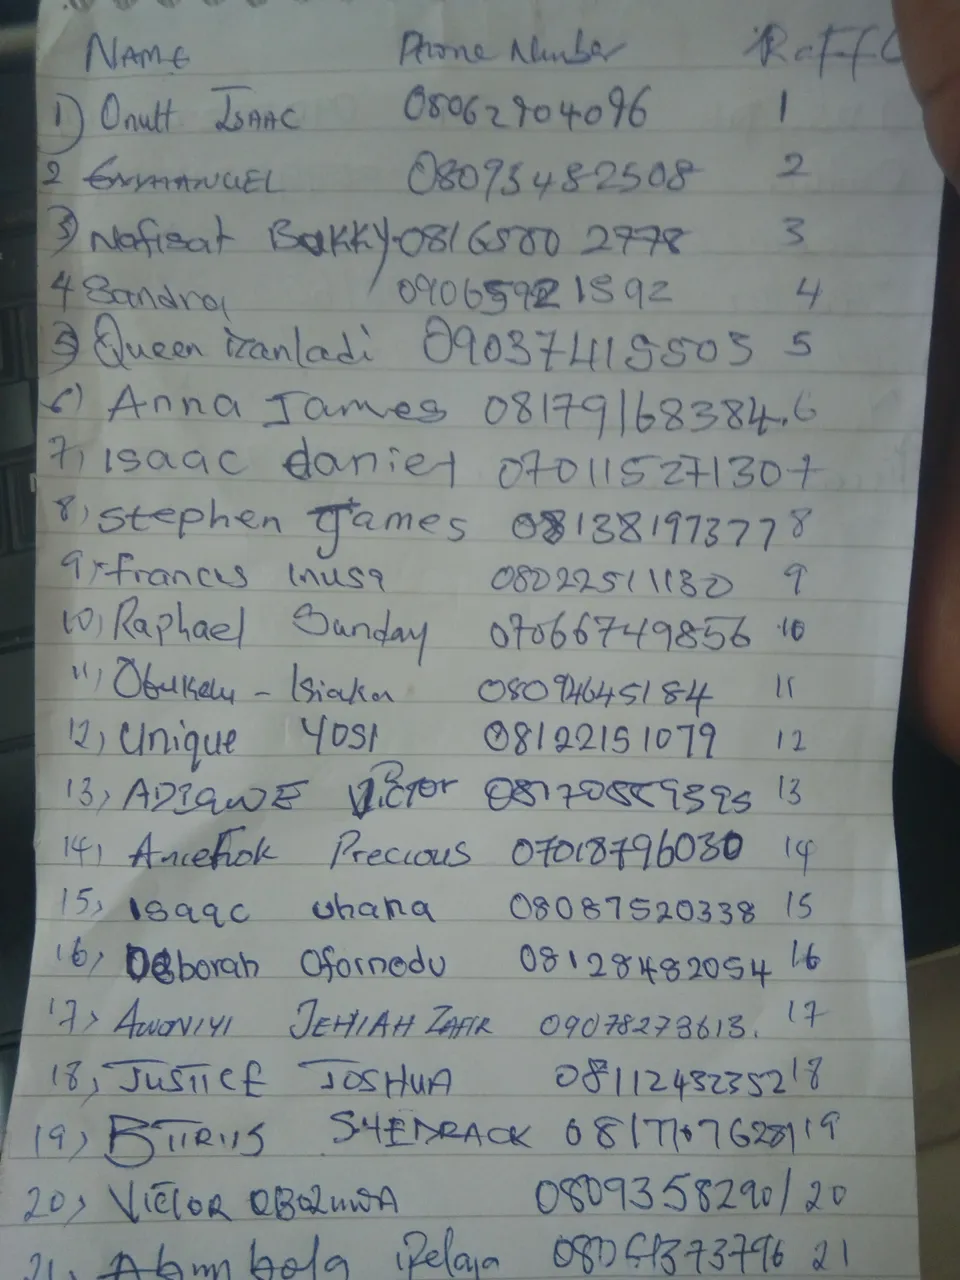 NAME Phone Number Raffl
1) Onutt ISAAC 08062904096 1
2 EMMANUEL 08093482508 2
3) Nafisat BUKKY 08165802778 3
4 Sandra 4
5) Queen izanladi 09037415503 5
6) Anna James 08179168384. 6
7, Isaac daniel 07011527130 7
8, Stephen James 08138197377 8
9, francis Inusa 08022511130 9
10, Raphael Sunday 07066749856 10
11, - Isiaka 08094645184 11
12, Unique YOSI 08122151079 12
13, Victor 13
14, Precious 07018796030 14
15, Isaac uhana 08087520338 15
16, Deborah Ofornedu 08128482054 16
17, AWONIYI JEHIAH ZAFIR 09078273613. 17
18, JUSTICE JOSHUA 08112432352 18
19) BTIRUS SHEDRACK 19
20, VICTOR 08093582901 20
21, Abimbola 08061373796 21